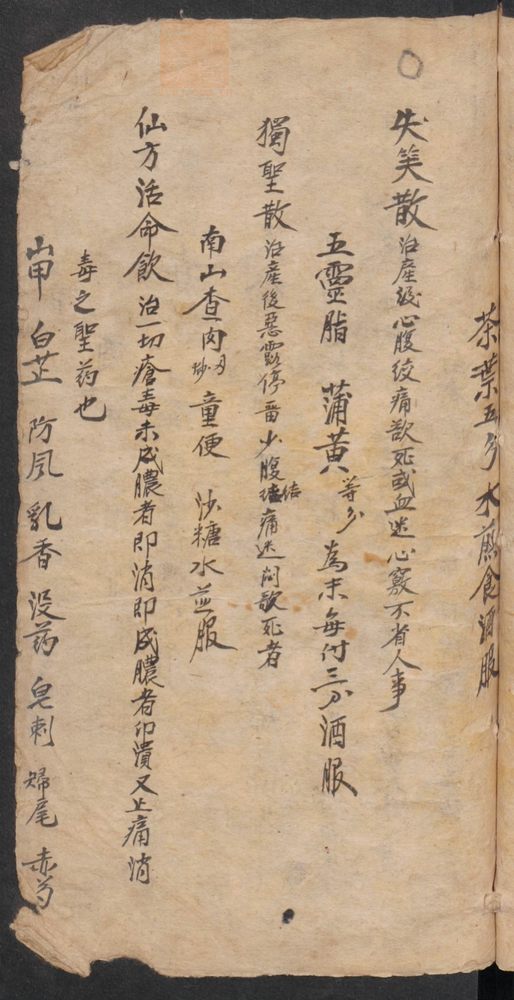 茶葉五分水煎食酒服
失笑散治産後心腹絞痛欲死或血迷心竅不省人事
五靈脂 蒲黄等分 為末每付三分酒服
獨聖散治産後惡露停畱少腹結痛迷悶欲死者
南山查肉炒 童便 沙糖水並服
仙方活命飲治一切瘡毒未成膿者即消即成膿者即潰又止痛消
毒之聖药也
山甲 白芷 防風 乳香 没药 皂刺 㱕尾 赤芍